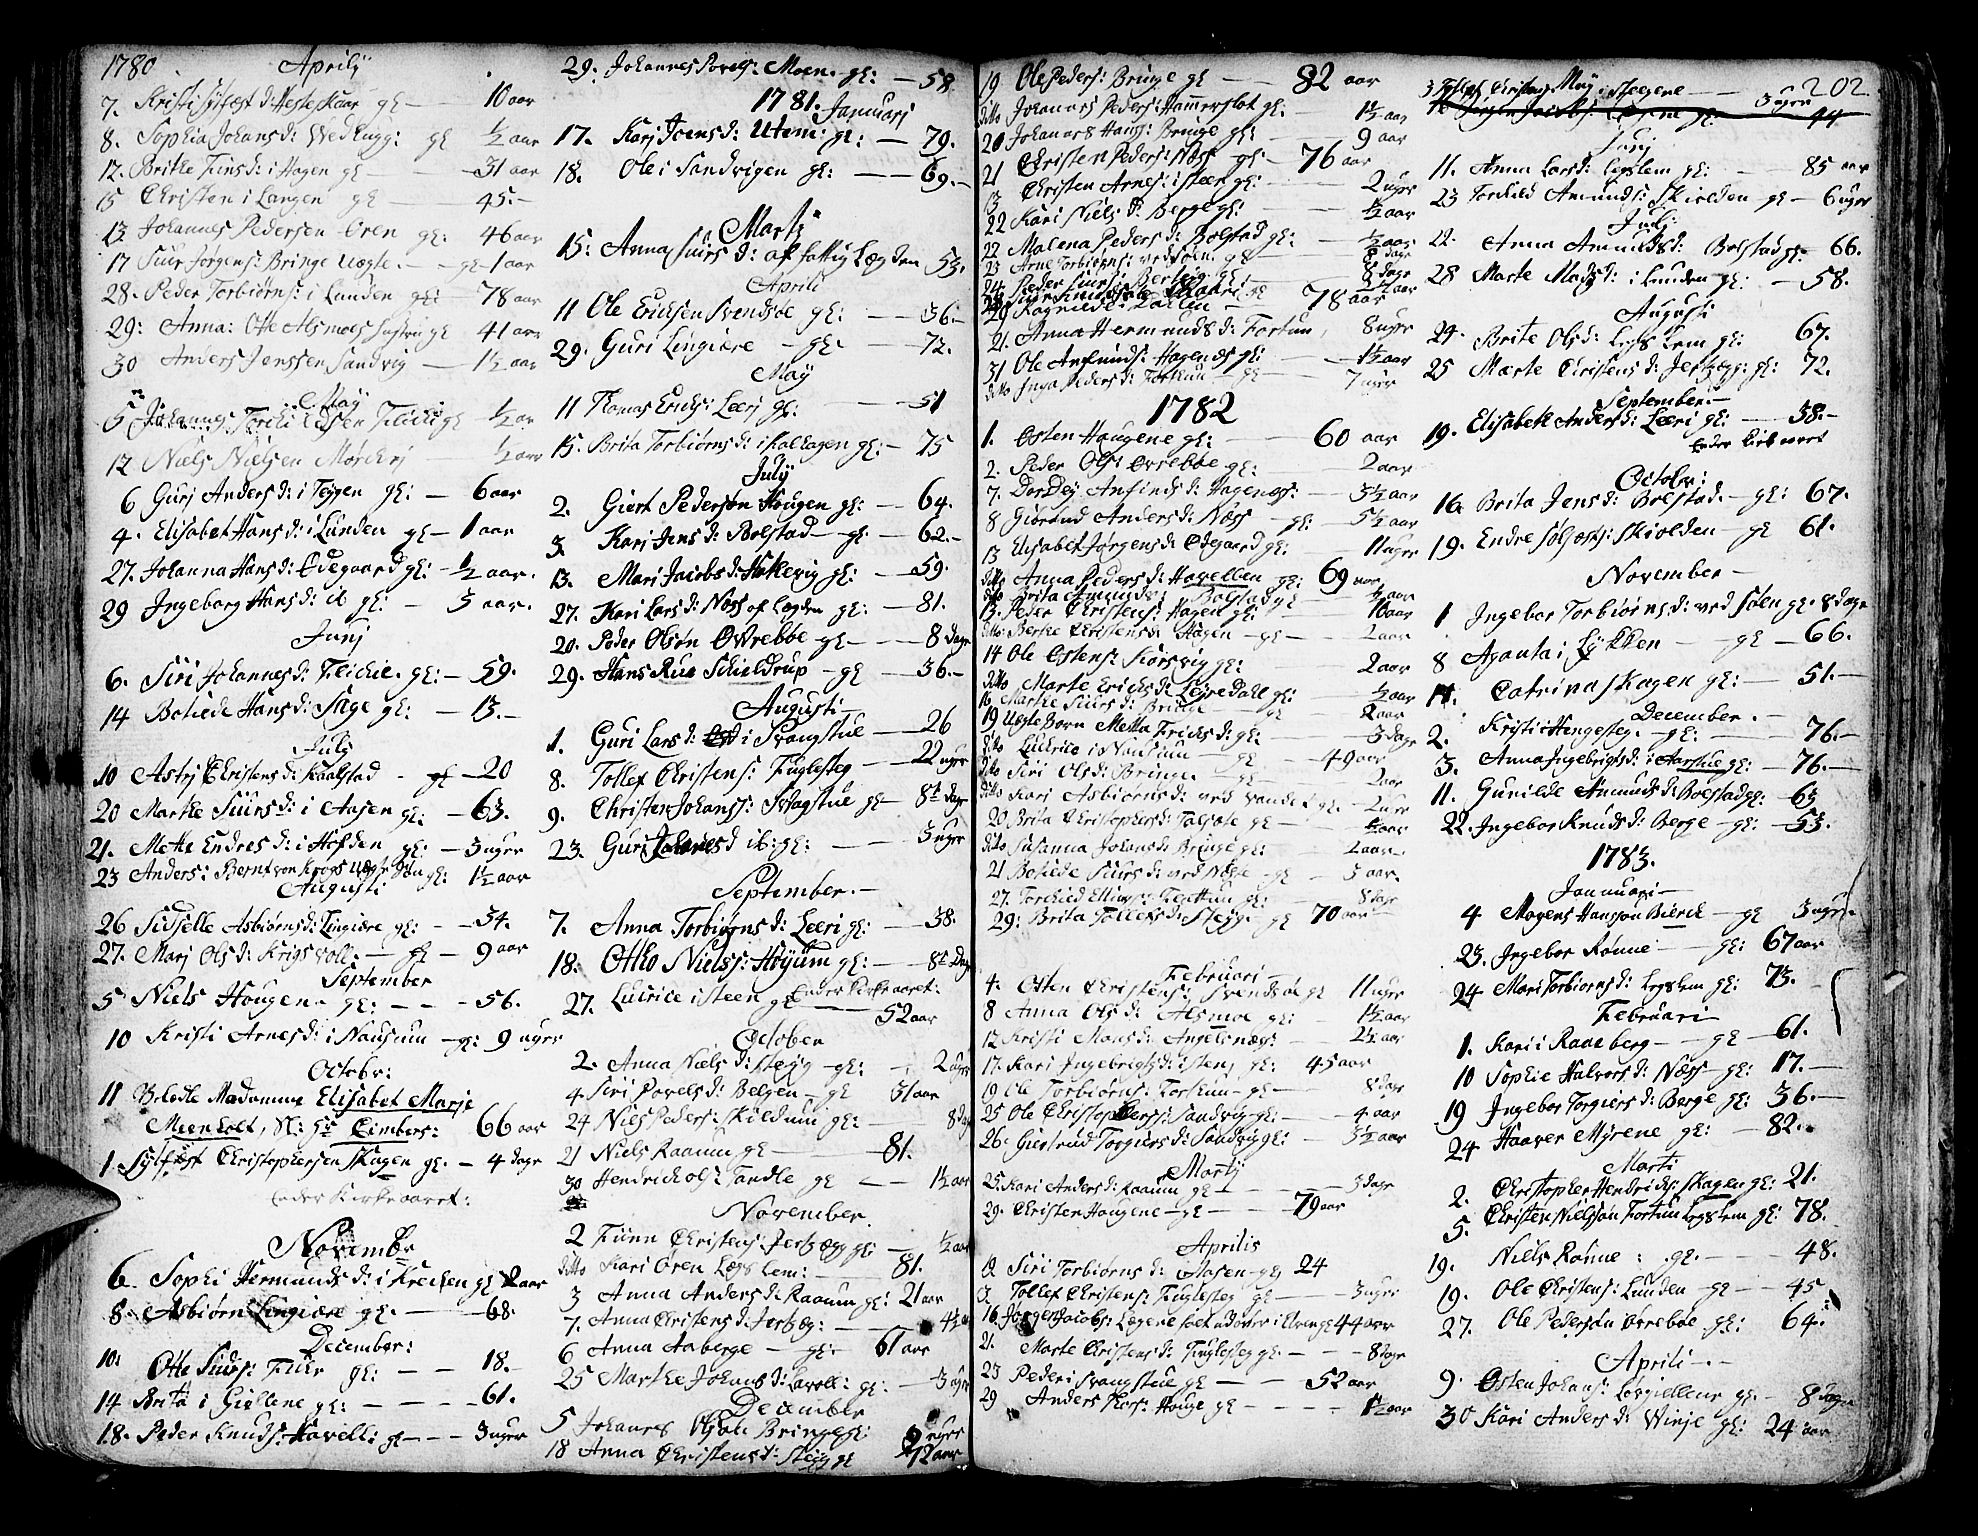 1780 Aprilj
7. Kristi Sylfæst d: Hesteskaar gl — 10 aar
8. Sophia Johans d: gl ½ aar
12. Britte d: i Hagen gl — 31 aar
15 Christen i Langen gl — 45.-
13 Johannes Pedersen Øren gl: 46 aar
17 Siur Jørgens: Bringe Uægte. — gl 1 aar
28. Peder Torbiørns: i Lunden gl: 78 aar
29: Anna: Otte Alsmoes gl 41 aar
30 Anders Jenssen Sandvig — 1½ aar
May
5 Johannes gl ½ aar
12 Niels Nielsen Mørcherj — ½ aar
6 Gurj Anders d: i Teigen gl: — 6 aar
4. Elisabet Hans d: i Lunden gl — 1 aar
27. Johanna Hans d: Ødegaard gl: - ½ aar.
29 Ingeborg Hans d: ib gl: - 3 aar.
Junj
6. Siri Johannes d: gl: — 59.
14 Botilde Hans d: gl: — 13.-
July
10 Astrj Christens d: Kaalstad - gl — 20
20 Marthe Siurs d: i Aasen gl: — 63.
21. Mette Endres d: i Hofden gl: — 3 uger
23 Anders: Berntson Krogs Uægte Søn gl: 1½ aar
Augusti
26 Sidselle Asbiørns d: Lingiære gl: — 34.
27. Marj Ols d: Krigsvoll. — gl — 9 aar
September
5 Niels Hougen gl: — - 56.
10 Kristi Arnes d: i Nausum — gl: 9 uger
Octobr:
11 Velædle Madamme Elisabet Marje
Meenholt, Sl: Hr Eimbers: 66 aar
1. Sylfest Christophersen Skagen gl. — 4 dage
Ender Kirkeaaret:
Novembr
6. Sophi Hermunds d: i Kroken gl 2 aar
8. Asbiørn Lingiære gl. — 68.
December:
10. Otte Siurs: gl: — 18.-
14 Brita i Giellene gl: - - - 61.
18. Peder Knuds: Havell: gl - - - 3 uger
29. Johannes Povels: Moen. gl: — 58
1781. Januarj
17. Karj Joens d: Utem: gl: — 79.
18. Ole i Sandvigen gl: — 69.-
Martj
15: Anna Siurs d: af fattig Lægden 53.
Aprili
11 Ole Erichsen Svendsøe gl: — 36.-
29. Guri Lingiære - gl — 72.
May
11 Thomas Erichs: Leerj gl: — 51
15. Brita Torbiørns d: i Kalhagen gl: - 75
July
2. Giert Pedersøn Hougen gl: — 64.
3. Kari Jens d: Bolstad — gl: — 62.-
13. Mari Jacobs d: Høkevig gl: — 59.
27. Kari Lars d: Næss af Lægden gl: — 81.
20. Peder Olsøn Øvrebøe gl — 8 dage
29. Hans Rue Schieldrup - gl — 36.-
Augusti
1. Guri Lars d: i Svangstue — 26
8. Tollef Christens: Fuglesteg — 22 uger
9. Christen Johans: Svagstue gl - 8te dage
23. Guri Johannes d ib: gl: — 3 uger
September.
7. Anna Torbiørns d: Leeri gl: — 38.
18. Otto Niels: Høyum gl: — 8te Dage
27. Ludrice i Steen gl 52 aar
Ender Kirkeaaret:
October
2. Anna Niels d: Stegg - gl: - 2 uger
4. Siri Povels d: Bolgen - gl 31 aar
24 Niels Peders: Skieldum gl: — 8 dage
21 Niels Raaum gl — 81.
30 Hendrich Ols: Sandle gl — 1½ aar
November.
2 Finn Christens: Jertzegg gl: — ½ aar
ditto Kari Øren Lægslem: — 81.
3 Anna Anders d: Raaum gl: 21 aar
7. Anna Christens d: Jertzeg: — 4½ aar
6 Anna Aaberge — gl: - 61 aar
25 Marthe Johans d: gl: — 3 uger
December
5 Johannes Bringe gl: 2 uger
18 Anna Christens d: Stegg gl 72 aar
19 Ole Peders: Bringe gl — 82 aar
ditto Johannes Peders: Hamerslot gl: 1½ aar
20 Johannes Hans: Bringe gl: 9 aar
21 Christen Peders: Næss gl - 76 aar
13 Christen Arnes: i Steen gl: — 2 uger
22 Kari Niels d: Berge gl: — ½ aar
22 Malena Peders d: Bolstad gl: — ½ aar
23 Arne Torbiørns: ved Søen. gl — 8 dage
24 Peder Siurs: gl — 8 dage
29 Ragnilde i Dahlen 78 aar
21. Anna Hermunds d: Fortun, 8 uger
31 Ole Amunds: Hagenæs gl: — 1½ aar
ditto Inga Peders d: Fortun - gl — 7 uger
1782
1. Østen Haugene gl: — 60 aar
2. Peder Ols: Øvrebøe gl: — 2 aar
7. Dordej Anfinds d: Hagenæs: — 3½ aar
8 Giørtrud Anders d: Næss — gl: — 5½ aar
13 Elisabet Jørgens d: Ødegaard gl: — 11 uger
ditto Anna Peders d: Havellen gl: 69 aar
dto Brita Amunds d: Bolstad gl — ½ aar
13. Peder Christens: Hagen gl: — 16 aar
ditto: Berthe Christens d: Hagen - gl — 2 aar
14 Ole Østens: Kiørsvig gl: — 2 aar
ditto Marte Erichs d: Lejredahl gl: — ½ aar
16 Marthe Siurs d: Bringe gl 2 aar
19 Uægte Barn Metta Erichs d: gl: — 3 dage
ditto Ludrice i Nausum gl — 40 aar
ditto Siri Ols d: Bringe — gl — 2 aar
ditto Kari Asbiørns d: ved Vandet gl. — 2 uger
20 Brita Christophers d: gl — ½ aar
ditto Susanna Johans d: Bringe gl: — 2 aar
21 Botilde Siurs d: gl — 3 aar.
27. Torchild Ellings: gl: — 8 dage
29: Brita Tollefs d: Stegg: - gl 70 aar
Februari
4. Østen Christens: Svendsøe gl 11 uger
8 Anna Ols d: Alsmoe gl: — 1½ aar
12 Kristi Mons d: Angelsnæs: — 2½ aar
17. Kari Ingebrigts d: i Steen, gl: 45 aar
19 Ole Torbiørns: Fortun - gl — 8 dage
25 Ole Christophers: Sandvig gl: — 4 aar
26. Giertrud Torgiers d: Sandvig gl: — 3½ aar
Martj
25. Kari Anders d: Raaum gl — 3 dage
29. Christen Haugene - gl — 79 aar
Aprilis
12. Siri Torbiørns d: Aasen - gl, 24
13. Tollef Christens: Fuglesteg gl — 3 uger
16. Jørgen Jacobs: Løgene i Elven gl 44 aar
21. Marte Christens d: Fuglesteg gl — 8 dage
23 Peder i Svangstue gl — 52 aar
29 Anders Thors: Houge gl - - - - 1½ aar
202
May
3 Christens: Stegene — 3 uger
Jørgen Jacobs: Løgene gl. 44
Junj
11. Anna Lars d: Legslem gl: — 85 aar
23 Torchild Amunds: Skiolden - gl — 6 uger
Julj
22. Anna Amunds d: Bolstad gl — 66.
28 Marte Mads d: i Lunden gl: — 58.
Augusti
24. Brite Ols d: Legslem gl: 67.
25 Marte Christens d: Jertzegg: gl: 72.
September.-
19. Elisabeth Anders d: Leeri gl: — 38.-
Ender Kirkeaaret
Octobr:
16. Brita Jens d: Bolstad. — gl: 67.
19. Endre Sølfæsts: Skiolden - gl 61.
November -
1 Ingebor Torbiørns d: ved Søen gl. 8 dage
8 Aganta i Løkken - gl — 66.
14. Catrina Skagen gl: — 51.-
December.-
2. Kristi i Hengesteg. — gl: — 76.-
3. Anna Ingebrigts d: i Aarstue gl: — 76.-
11. Gunilde Amunds d: Bolstad gl: — 63
22. Ingebor Knuds d: Berge - gl: — 53.
1783.
Januari —
4 Mogens Hanssøn Bierch — gl 3 uger.
23. Ingebor Rønne — gl: 67 aar
24 Mari Torbiørns d: Legslem gl: 73.
Februari
1. Kari i Raneberg — gl — 61.
10 Sophie Halvors d: Næss — gl: 17.-
19 Ingebor Torgiers d: Berge gl: 36.-
24 Haaver Myrene gl: — 82.
Marti
2. Christopher Hendrichs: Skagen gl: 21.
5. Christen Nielssøn Fortun Legslem gl: 78.
19. Niels Rønne: gl. - - - 48.
19. Ole Christens: Lunden - gl — 45
27. Ole Pedersøn Øvrebøe gl: 64.
Aprili -.-
9. Østen Johans: gl. — 8 dage
30 Kari Anders d: Winje gl: 24 aar